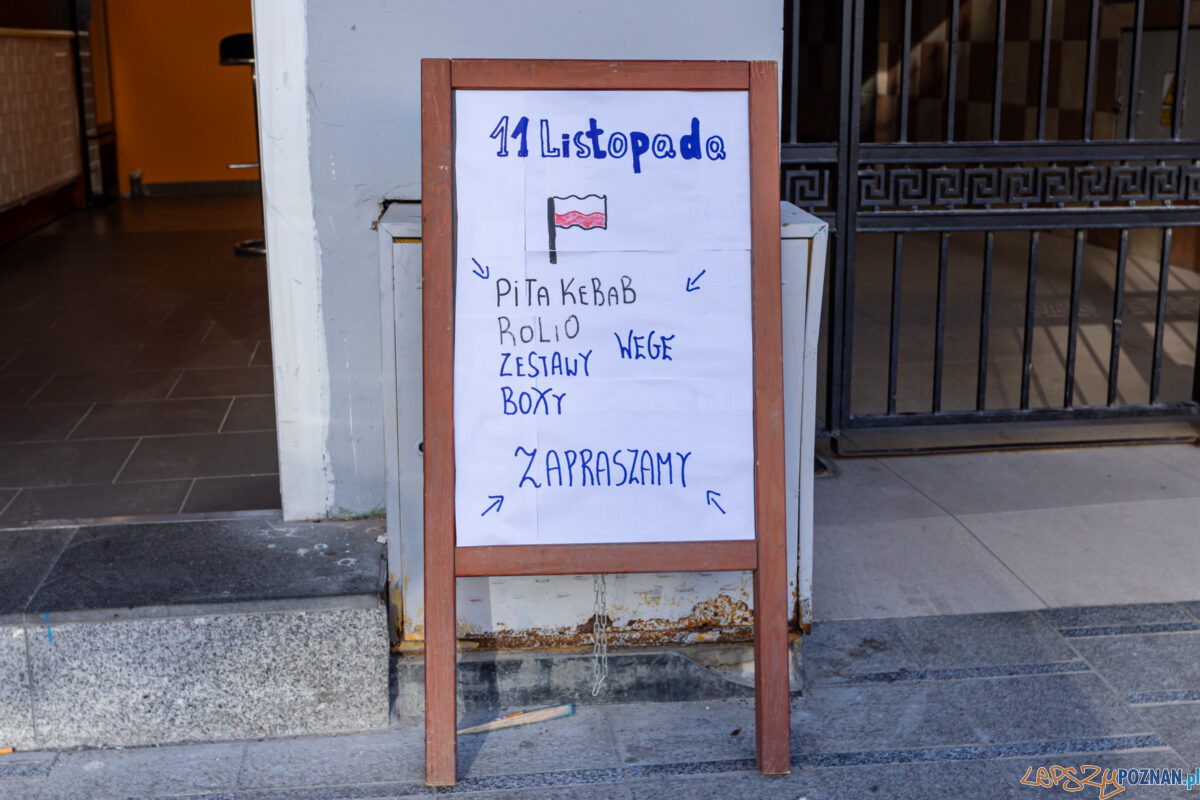 11 Listopada
PITA KEBAB
ROLIO
WEGE
ZESTAWY
BOXY
ZAPRASZAMY
LEPSZYPOZNAN.pl